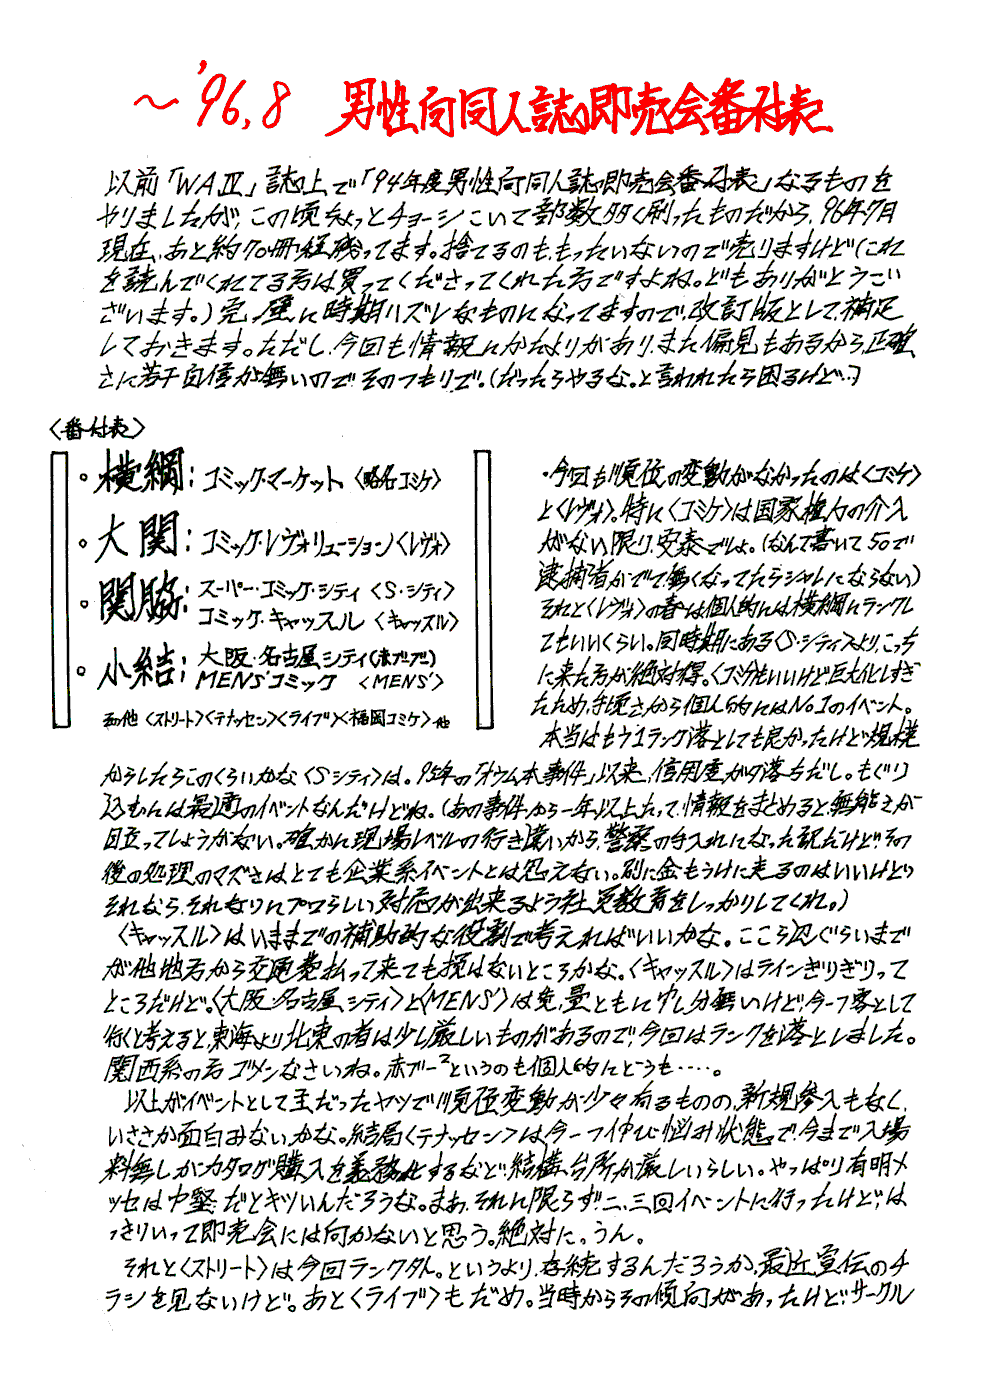 ～'96,8 男性向同人誌即売会番付表
以前「WAⅣ」誌上で「94年度男性向同人誌即売会番付表」なるものを
やりましたが、この頃ちょっとチョーシこいて部数多く刷ったものだから、96年7月
現在、あと約70冊程残ってます。捨てるのももったいないので売りますけど(これ
を読んでくれてる方は買ってくださってくれた方ですよね。どもありがとうご
ざいます。)完璧に時期ハズレなものになってますので、改訂版として、補足
しておきます。ただし、今回も情報にかたよりがあり、また偏見もあるから、正確
さに若干自信が無いのでそのつもりで。(だったらやるな。と言われたら困るけど…)
〈番付表〉
・横綱：コミック・マーケット〈略名コミケ〉
・大関：コミック・レヴォリューション〈レヴォ〉
・関脇：スーパー・コミック・シティ〈S・シティ〉
コミック・キャッスル〈キャッスル〉
・小結：大阪・名古屋シティ(赤ブーブー)
MENS'コミック〈MENS'〉
その他〈ストリート〉〈テナッセン〉〈ライブ〉〈福岡コミケ〉他
・今回も順位の変動がなかったのは〈コミケ〉
と〈レヴォ〉。特に〈コミケ〉は国家権力の介入
がない限り、安泰でしょ。(なんて書いて50で
逮捕者がでて無くなってたらシャレにならない)
それと〈レヴォ〉の春は個人的には横綱にランクし
てもいいくらい。同時期にある〈S・シティ〉より、こっち
に来た方が絶対得。〈コミケ〉もいいけど巨大化しすぎ
たため、手頃さから個人的にはNo.1のイベント。
本当はもう1ランク落としても良かったけど規模
からしたらこのくらいかな〈Sシティ〉は。95年の「オウム本事件」以来、信用度がタ落ちだし。もぐり
込むには最適のイベントなんだけどね。(あの事件から一年以上たって、情報をまとめると、無能さが
目立ってしょうがない。確かに現場レベルの行き違いから、警察の手入れになった訳だけど、その
後の処理のマズさはとても企業系イベントとは思えない。別に金もうけに走るのはいいけど、
それなら、それなりにプロらしい対応が出来るよう社員教育をしっかりしてくれ。)
〈キャッスル〉はいままでの補助的な役割で考えればいいかな。ここら辺ぐらいまで
が他地方から交通費払って来ても損はないところかな。〈キャッスル〉はラインぎりぎりって
ところだけど。〈大阪・名古屋シティ〉と〈MENS'〉は質、量ともに申し分無いけど、今一つ客として
行くと考えると、東海より北東の者は少し厳しいものがあるので、今回はランクを落としました。
関西系の方ゴメンなさいね。赤ブー²というのも個人的にどうも……。
以上がイベントとして主だったヤツで順位変動が少々有るものの、新規参入もなく、
いささか面白みないかな。結局〈テナッセン〉は今一つ伸び悩み状態で、今まで入場
料無しがカタログ購入を義務化するなど、結構、台所が厳しいらしい。やっぱり有明メ
ッセは中堅だとキツいんだろうな。まぁ、それに限らず、二、三回イベントに行ったけど、は
っきりいって即売会には向かないと思う。絶対に。うん。
それと〈ストリート〉は今回ランク外。というより、存続するんだろうか、最近、宣伝のチ
ラシを見ないけど。あと〈ライブ〉もだめ。当時からその傾向があったけど、サークル